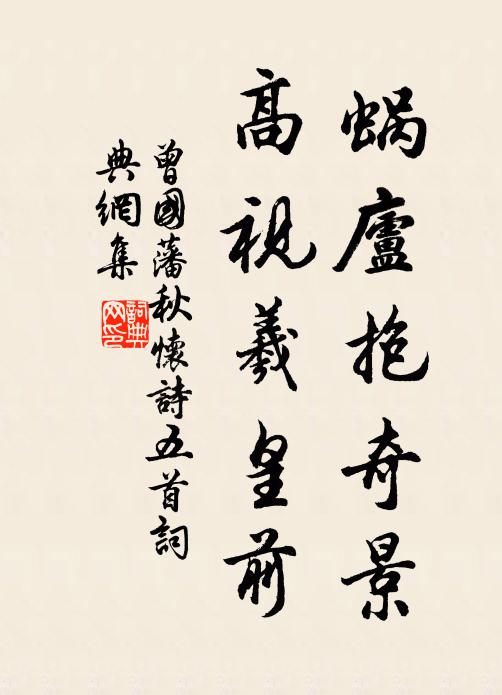 蝸廬抱奇景
高視羲皇前
曾國藩秋懷詩五首詞
典網集
詞典
网印